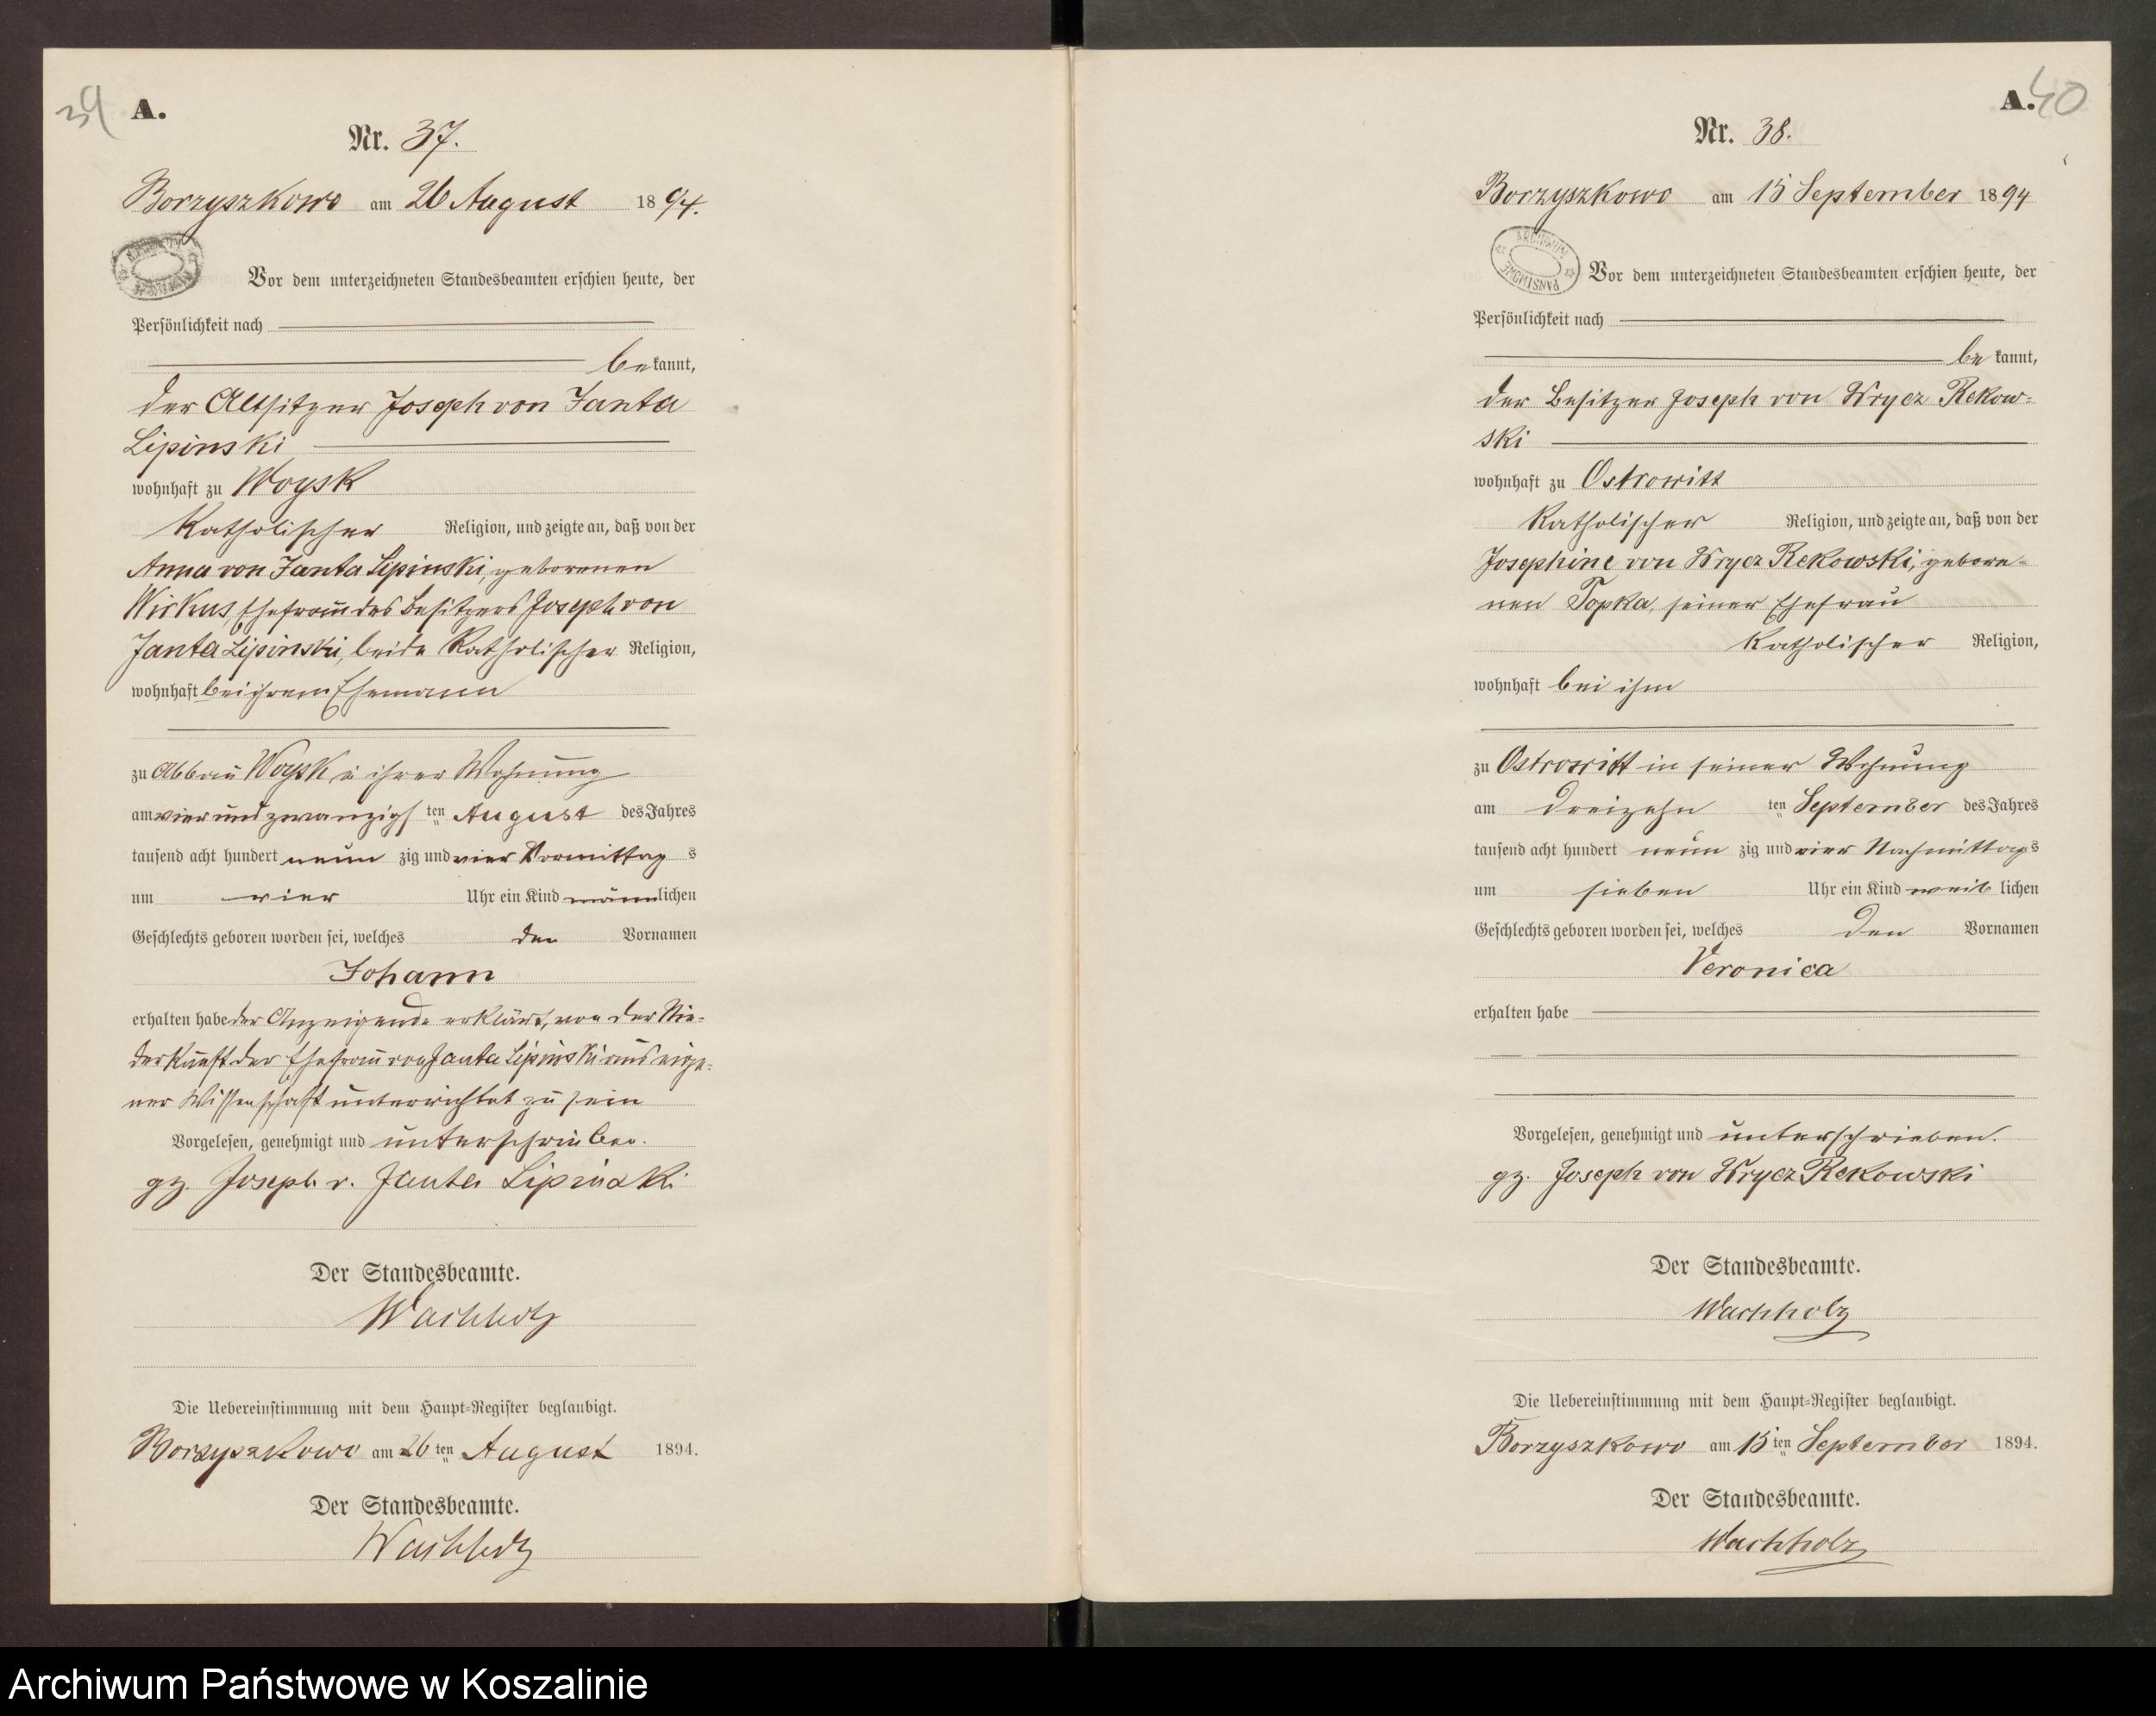 39 A.
Nr. 37.
Borzyszkowo am 26 August 1894.
Vor dem unterzeichneten Standesbeamten erschien heute, der
Persönlichkeit nach
bekannt,
der Altsitzer Joseph von Janta
Lipinski
wohnhaft zu Woysk
katholischer Religion, und zeigte an, daß von der
Anna von Janta Lipinski, geborenen
Wirkus, Ehefrau des Besitzers Joseph von
Janta Lipinski, beide katholischer Religion,
wohnhaft bei ihrem Ehemann
zu Abbau Woysk in ihrer Wohnung
am vier und zwanzigsten August des Jahres
tausend acht hundert neun zig und vier Vormittag s
um vier Uhr ein Kind männlichen
Geschlechts geboren worden sei, welches den Vornamen
Johann
erhalten habe der Anzeigende erklärt, von der Nie-
derkunft der Ehefrau von Janta Lipinski aus eige-
ner Wissenschaft unterrichtet zu sein
Vorgelesen, genehmigt und unterschrieben.
gz. Joseph v. Janta Lipinski
Der Standesbeamte.
Wachholz
Die Uebereinstimmung mit dem Haupt-Register beglaubigt.
Borzyszkowo am 26 ten August 1894.
Der Standesbeamte.
Wachholz
A. 40
Nr. 38.
Borzyszkowo am 15 September 1894
ARCHIWUM PAŃSTWOWE
Vor dem unterzeichneten Standesbeamten erschien heute, der
Persönlichkeit nach
be kannt,
der Besitzer Joseph von Wrycz Rekow-
ski
wohnhaft zu Ostrowitt
katholischer Religion, und zeigte an, daß von der
Josephine von Wrycz Rekowski, gebore-
nen Topka, seiner Ehefrau
katholischer Religion,
wohnhaft bei ihm
zu Ostrowitt in seiner Wohnung
am dreizehn ten September des Jahres
tausend acht hundert neun zig und vier Nachmittags
um sieben Uhr ein Kind weib lichen
Geschlechts geboren worden sei, welches den Vornamen
Veronica
erhalten habe
Vorgelesen, genehmigt und unterschrieben.
gz. Joseph von Wrycz Rekowski
Der Standesbeamte.
Wachholz
Die Uebereinstimmung mit dem Haupt-Register beglaubigt.
Borzyszkowo am 15 ten September 1894.
Der Standesbeamte.
Wachholz
Archiwum Państwowe w Koszalinie